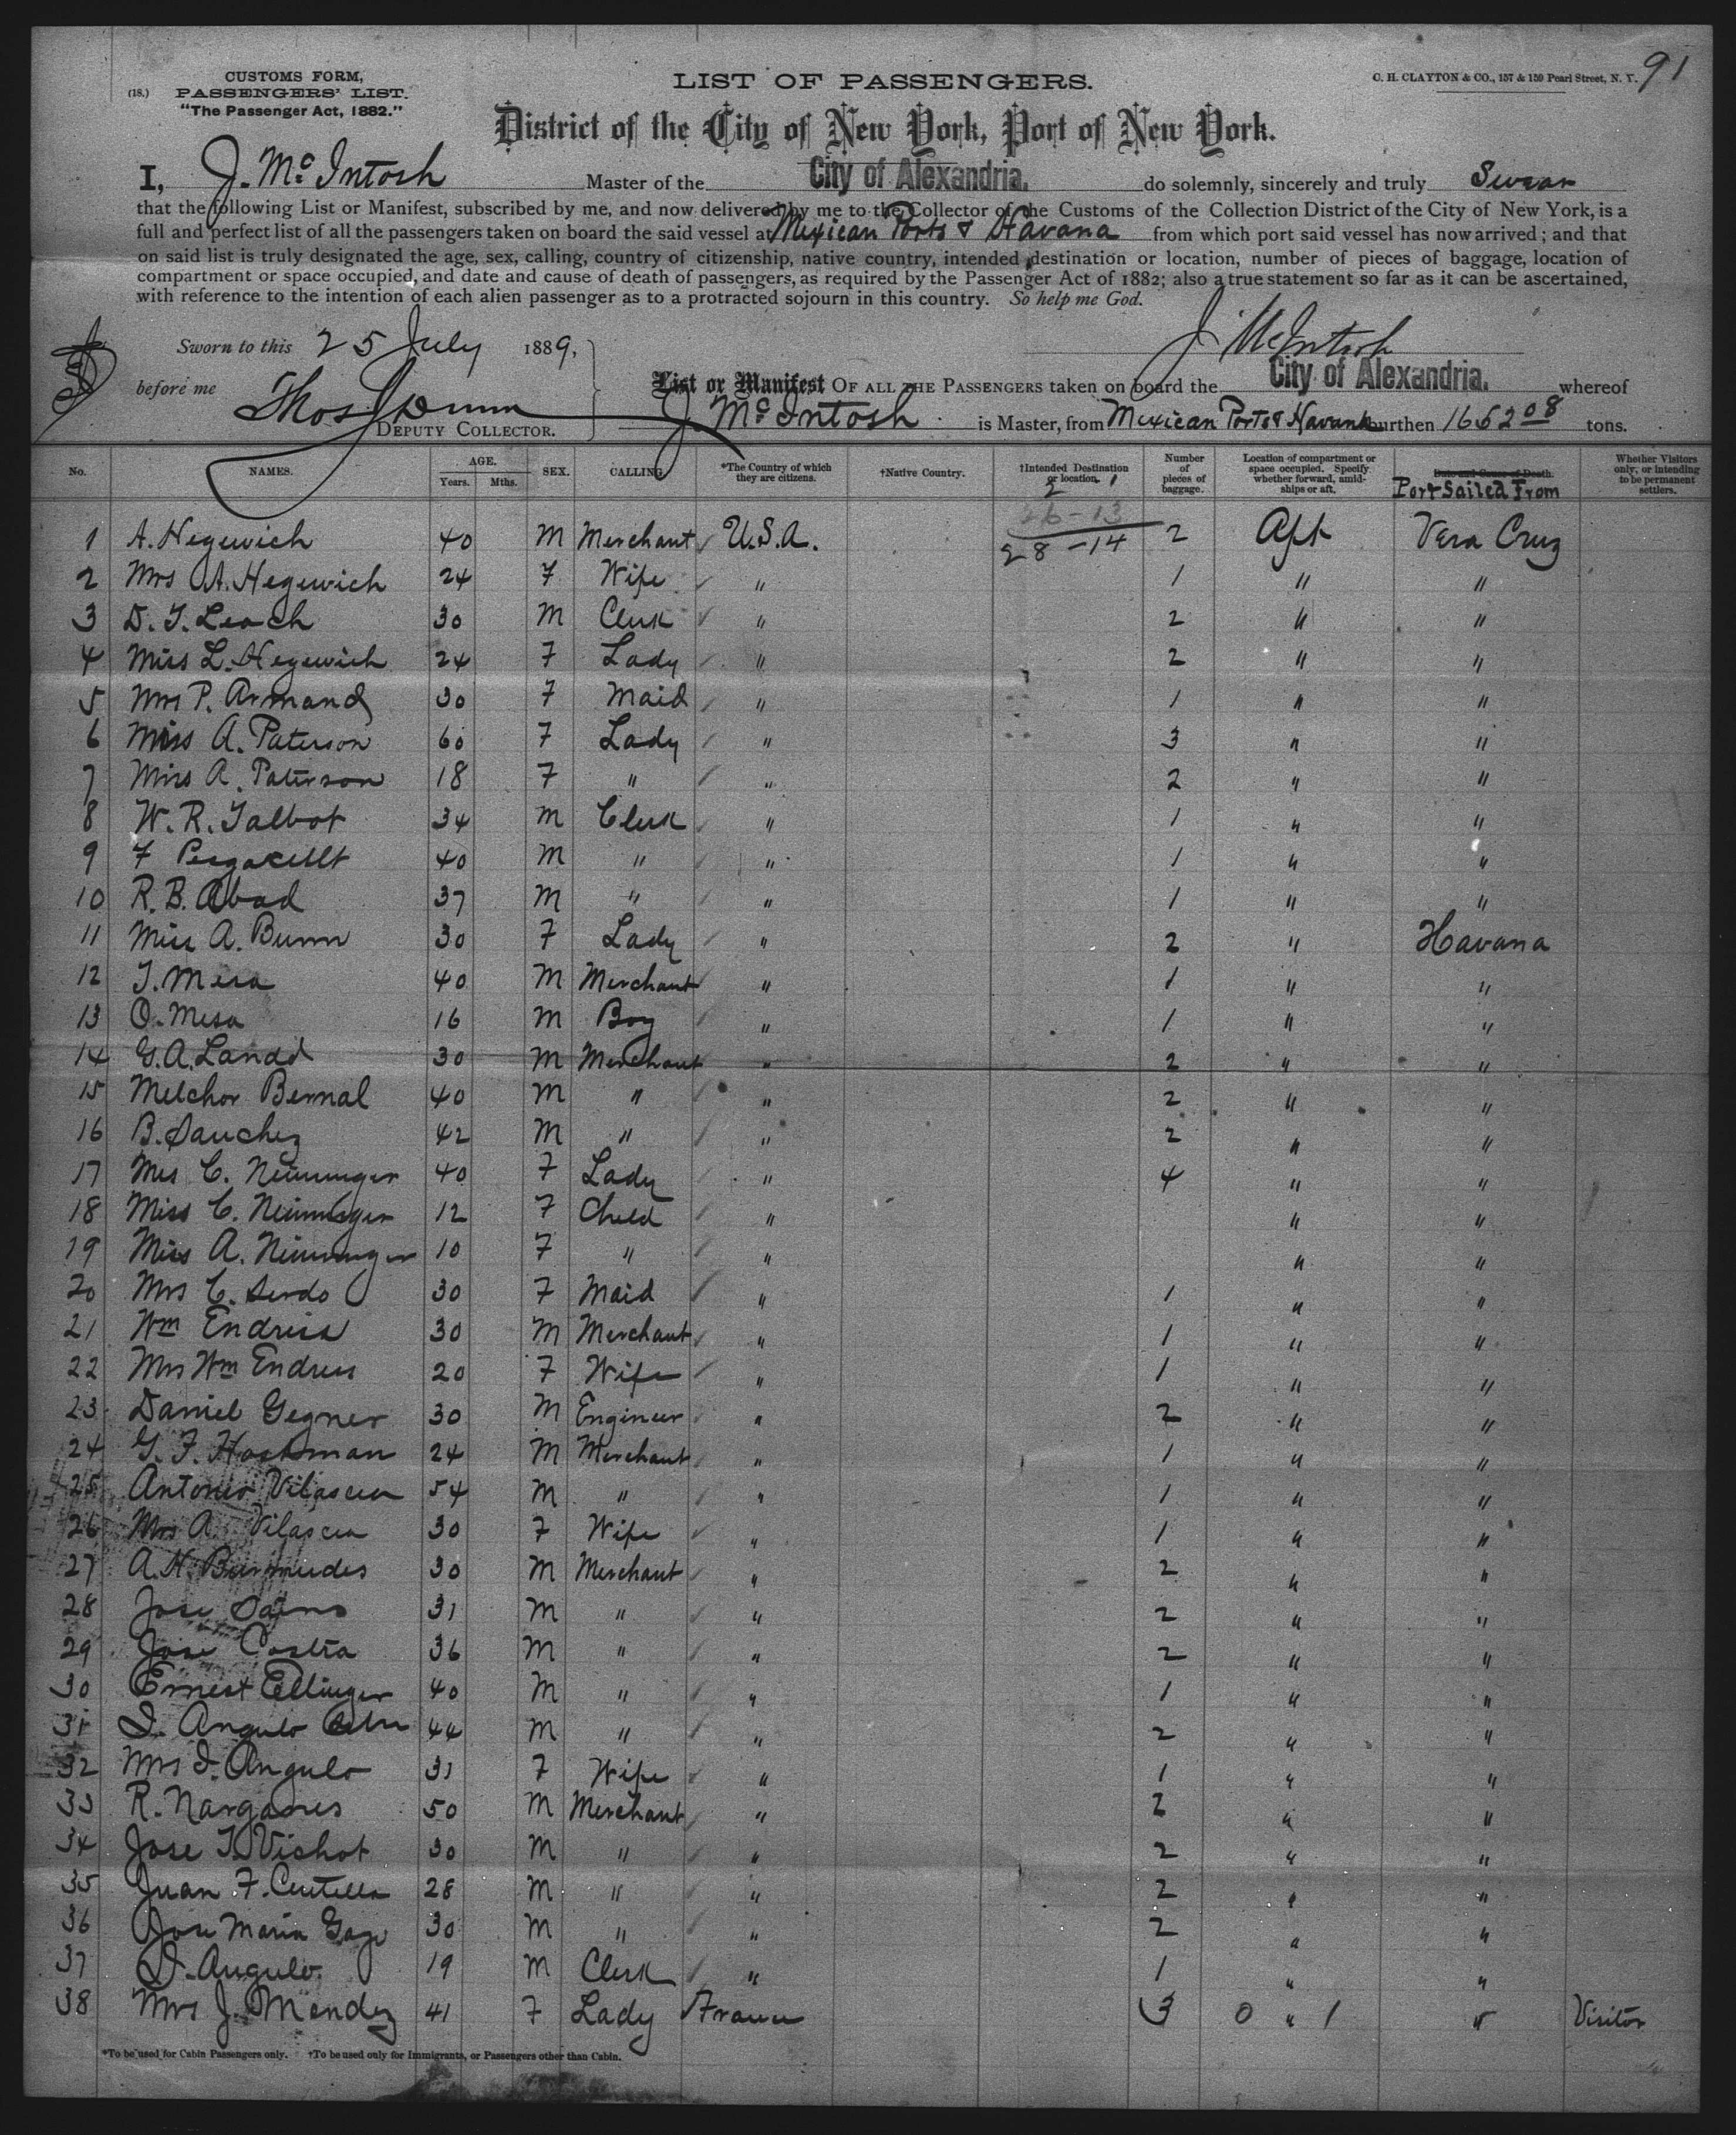 91
CUSTOMS FORM,
(18.) PASSENGERS' LIST.
"The Passenger Act, 1882."
LIST OF PASSENGERS.
C. H. CLAYTON & CO., 157 & 159 Pearl Street, N. Y.
District of the City of New York, Port of New York.
I, J. McIntosh Master of the City of Alexandria. do solemnly, sincerely and truly Swear
that the following List or Manifest, subscribed by me, and now delivered by me to the Collector of the Customs of the Collection District of the City of New York, is a
full and perfect list of all the passengers taken on board the said vessel at Mexican Ports & Havana from which port said vessel has now arrived; and that
on said list is truly designated the age, sex, calling, country of citizenship, native country, intended destination or location, number of pieces of baggage, location of
compartment or space occupied, and date and cause of death of passengers, as required by the Passenger Act of 1882; also a true statement so far as it can be ascertained,
with reference to the intention of each alien passenger as to a protracted sojourn in this country. So help me God.
Sworn to this 25 July 1889, J McIntosh
before me Thos Dunn DEPUTY COLLECTOR.
List or Manifest OF ALL THE PASSENGERS taken on board the City of Alexandria. whereof
J. McIntosh is Master, from Mexican Ports & Havana burthen 1662 08 tons.
No. NAMES. AGE. Years. Mths. SEX. CALLING. *The Country of which they are citizens. †Native Country. †Intended Destination or location. Number of pieces of baggage. Location of compartment or space occupied. Specify whether forward, amidships or aft. Date and Cause of Death. Port Sailed From Whether Visitors only, or intending to be permanent settlers.
2 1
26-13
28-14
1 A. Hegewich 40 M Merchant U.S.A. 2 Aft Vera Cruz
2 Mrs A. Hegewich 24 F Wife " 1 " "
3 D. T. Leach 30 M Clerk " 2 " "
4 Miss L. Hegewich 24 F Lady " 2 " "
5 Mrs P. Armand 30 F Maid " 1 " "
6 Miss A. Paterson 60 F Lady " 3 " "
7 Miss A. Paterson 18 F " " 2 " "
8 W. R. Talbot 34 M Clerk " 1 " "
9 F 40 M " " 1 " "
10 R. B. Abad 37 M " " 1 " "
11 Miss A. Bunn 30 F Lady " 2 " Havana
12 T. Mesa 40 M Merchant " 1 " "
13 O. Mesa 16 M Boy " 1 " "
14 G. A. Landd 30 M Merchant " 2 " "
15 Melchor Bernal 40 M " " 2 " "
16 B. Sanchez 42 M " " 2 " "
17 Mrs C. Neuninger 40 F Lady " 4 " "
18 Miss C. Neuninger 12 F Child " " "
19 Miss A. Neuninger 10 F " " " "
20 Mrs C. Serdo 30 F Maid " 1 " "
21 Wm Endriss 30 M Merchant " 1 " "
22 Mrs Wm Endress 20 F Wife " 1 " "
23 Daniel Gegner 30 M Engineer " 2 " "
24 G. F. Hoshman 24 M Merchant " 1 " "
25 Antonio Vilascea 54 M " " 1 " "
26 Mrs A Vilascea 30 F Wife " 1 " "
27 A. H. Burmudes 30 M Merchant " 2 " "
28 Jose 31 M " " 2 " "
29 Jose Costra 36 M " " 2 " "
30 Ernest Ellinger 40 M " " 1 " "
31 I. Angulo 44 M " " 2 " "
32 Mrs I. Angulo 31 F Wife " 1 " "
33 R. Narganes 50 M Merchant " 2 " "
34 Jose T. Vichot 30 M " " 2 " "
35 Juan F. Centella 28 M " " 2 " "
36 Jose Maria 30 M " " 2 " "
37 I. Angulo. 19 M Clerk " 1 " "
38 Mrs J. Mendez 41 F Lady France 3 0 " 1 " Visitor
*To be used for Cabin Passengers only. †To be used only for Immigrants, or Passengers other than Cabin.